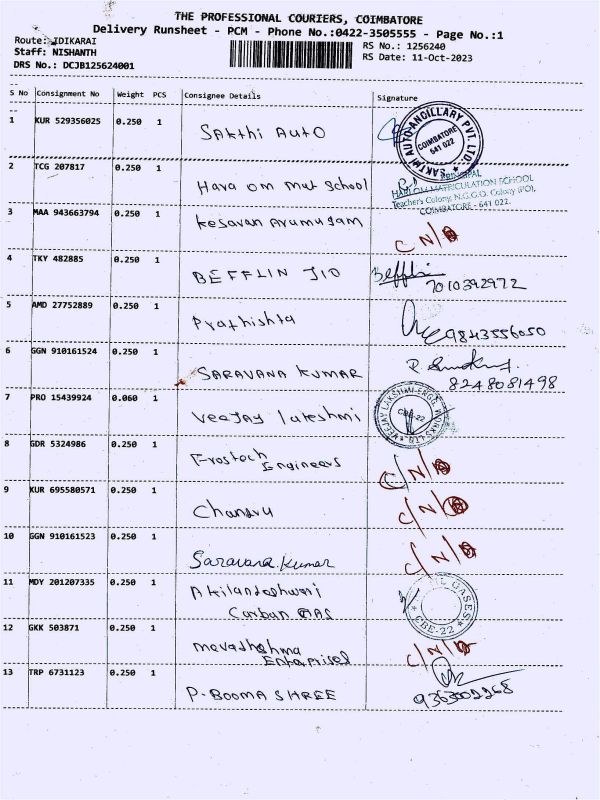 THE PROFESSIONAL COURIERS, COIMBATORE
Delivery Runsheet - PCM - Phone No.:0422-3505555 - Page No.:1
Route: IDIKARAI
Staff: NISHANTH
DRS No.: DCJB125624001
RS No.: 1256240
RS Date: 11-Oct-2023
S No Consignment No Weight PCS Consignee Details Signature
1 KUR 529356025 0.250 1 Sakthi Auto
SAKTHI AUTO ANCILLARY PVT. LTD.
COIMBATORE
641 022
2 TCG 207817 0.250 1 Hara om mat school
PRINCIPAL
HARI OM MATRICULATION SCHOOL
Teacher's Colony, N.G.G.O. Colony (PO),
COIMBATORE - 641 022.
3 MAA 943663794 0.250 1 Kesavan Arumugam
C/N/
4 TKY 482885 0.250 1 BEFFLIN JIO
Befflin
7010392972
5 AMD 27752889 0.250 1 Prathishta
9843556050
6 GGN 910161524 0.250 1 SARAVANA KUMAR
8248081498
7 PRO 15439924 0.060 1 Veejay lakshmi
VEEJAY LAKSHMI ENGG. WORKS LTD
CBE-22
8 GDR 5324986 0.250 1 Frostech
Engineers
C/N/
9 KUR 695580571 0.250 1 Chandru
C/N/
10 GGN 910161523 0.250 1 Saravana Kumar
C/N/
11 MDY 201207335 0.250 1 Akilandeshwari
Carban GAS
GASES
CBE-22
12 GKK 503871 0.250 1
Enterprises
C/N/
13 TRP 6731123 0.250 1 P-BOOMA SHREE
9363002268